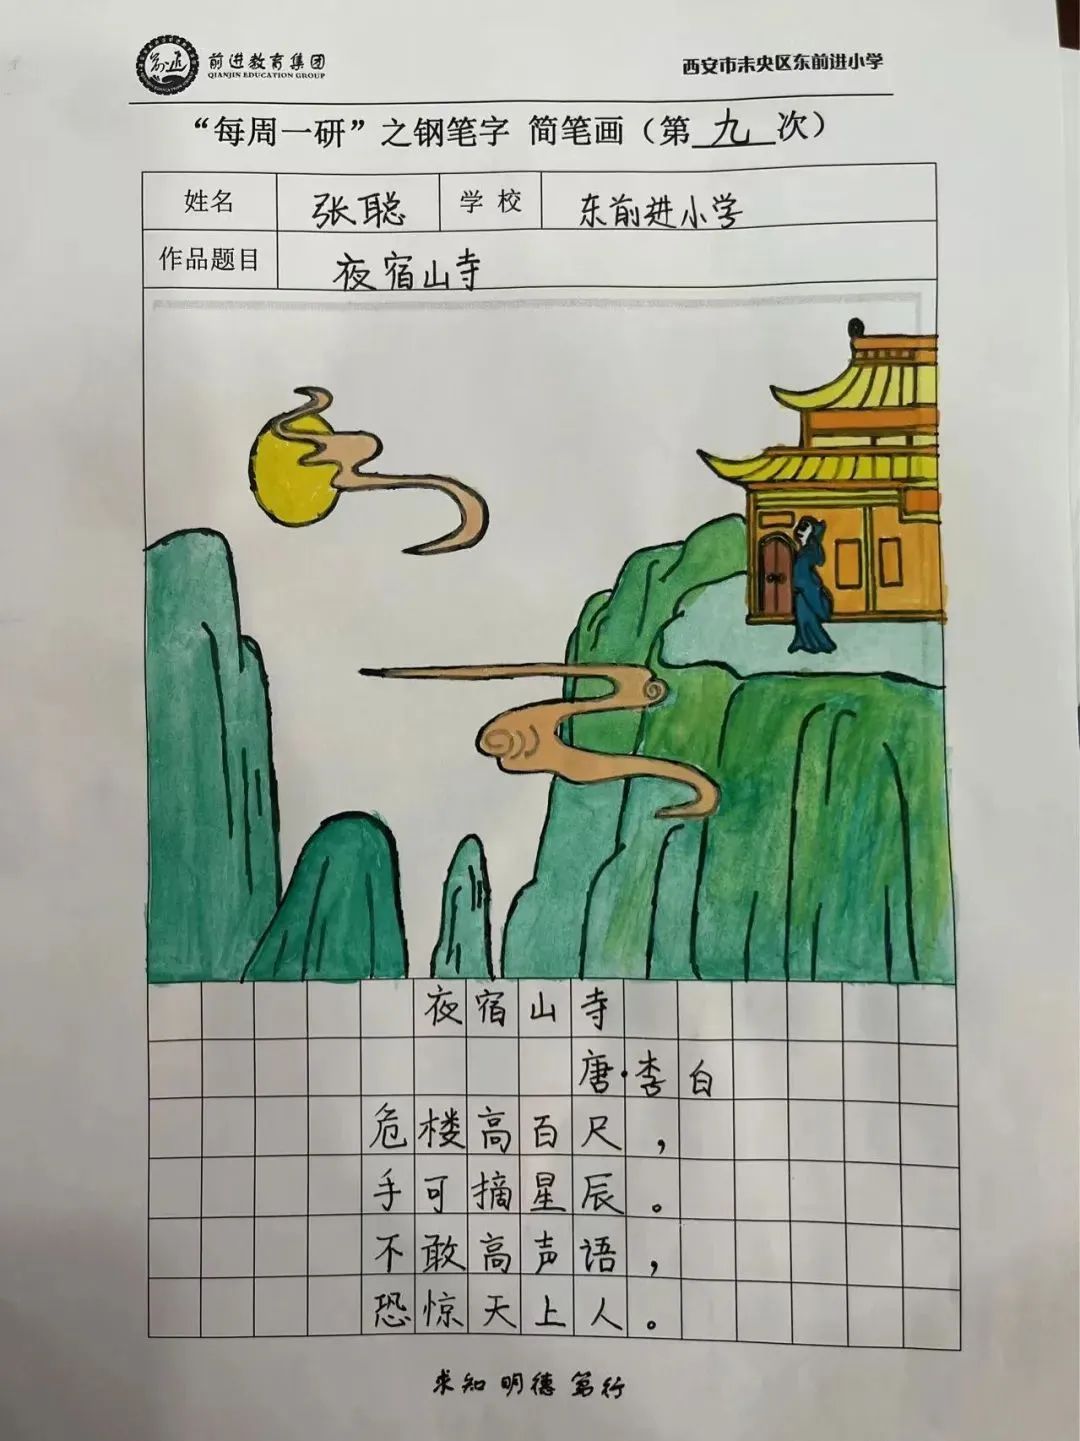 前进教育集团
QIANJIN EDUCATION GROUP
西安市未央区东前进小学
“每周一研”之钢笔字 简笔画（第九次）
姓名 张聪 学校 东前进小学
作品题目 夜宿山寺
夜宿山寺
唐·李白
危楼高百尺，
手可摘星辰。
不敢高声语，
恐惊天上人。
求知 明德 笃行